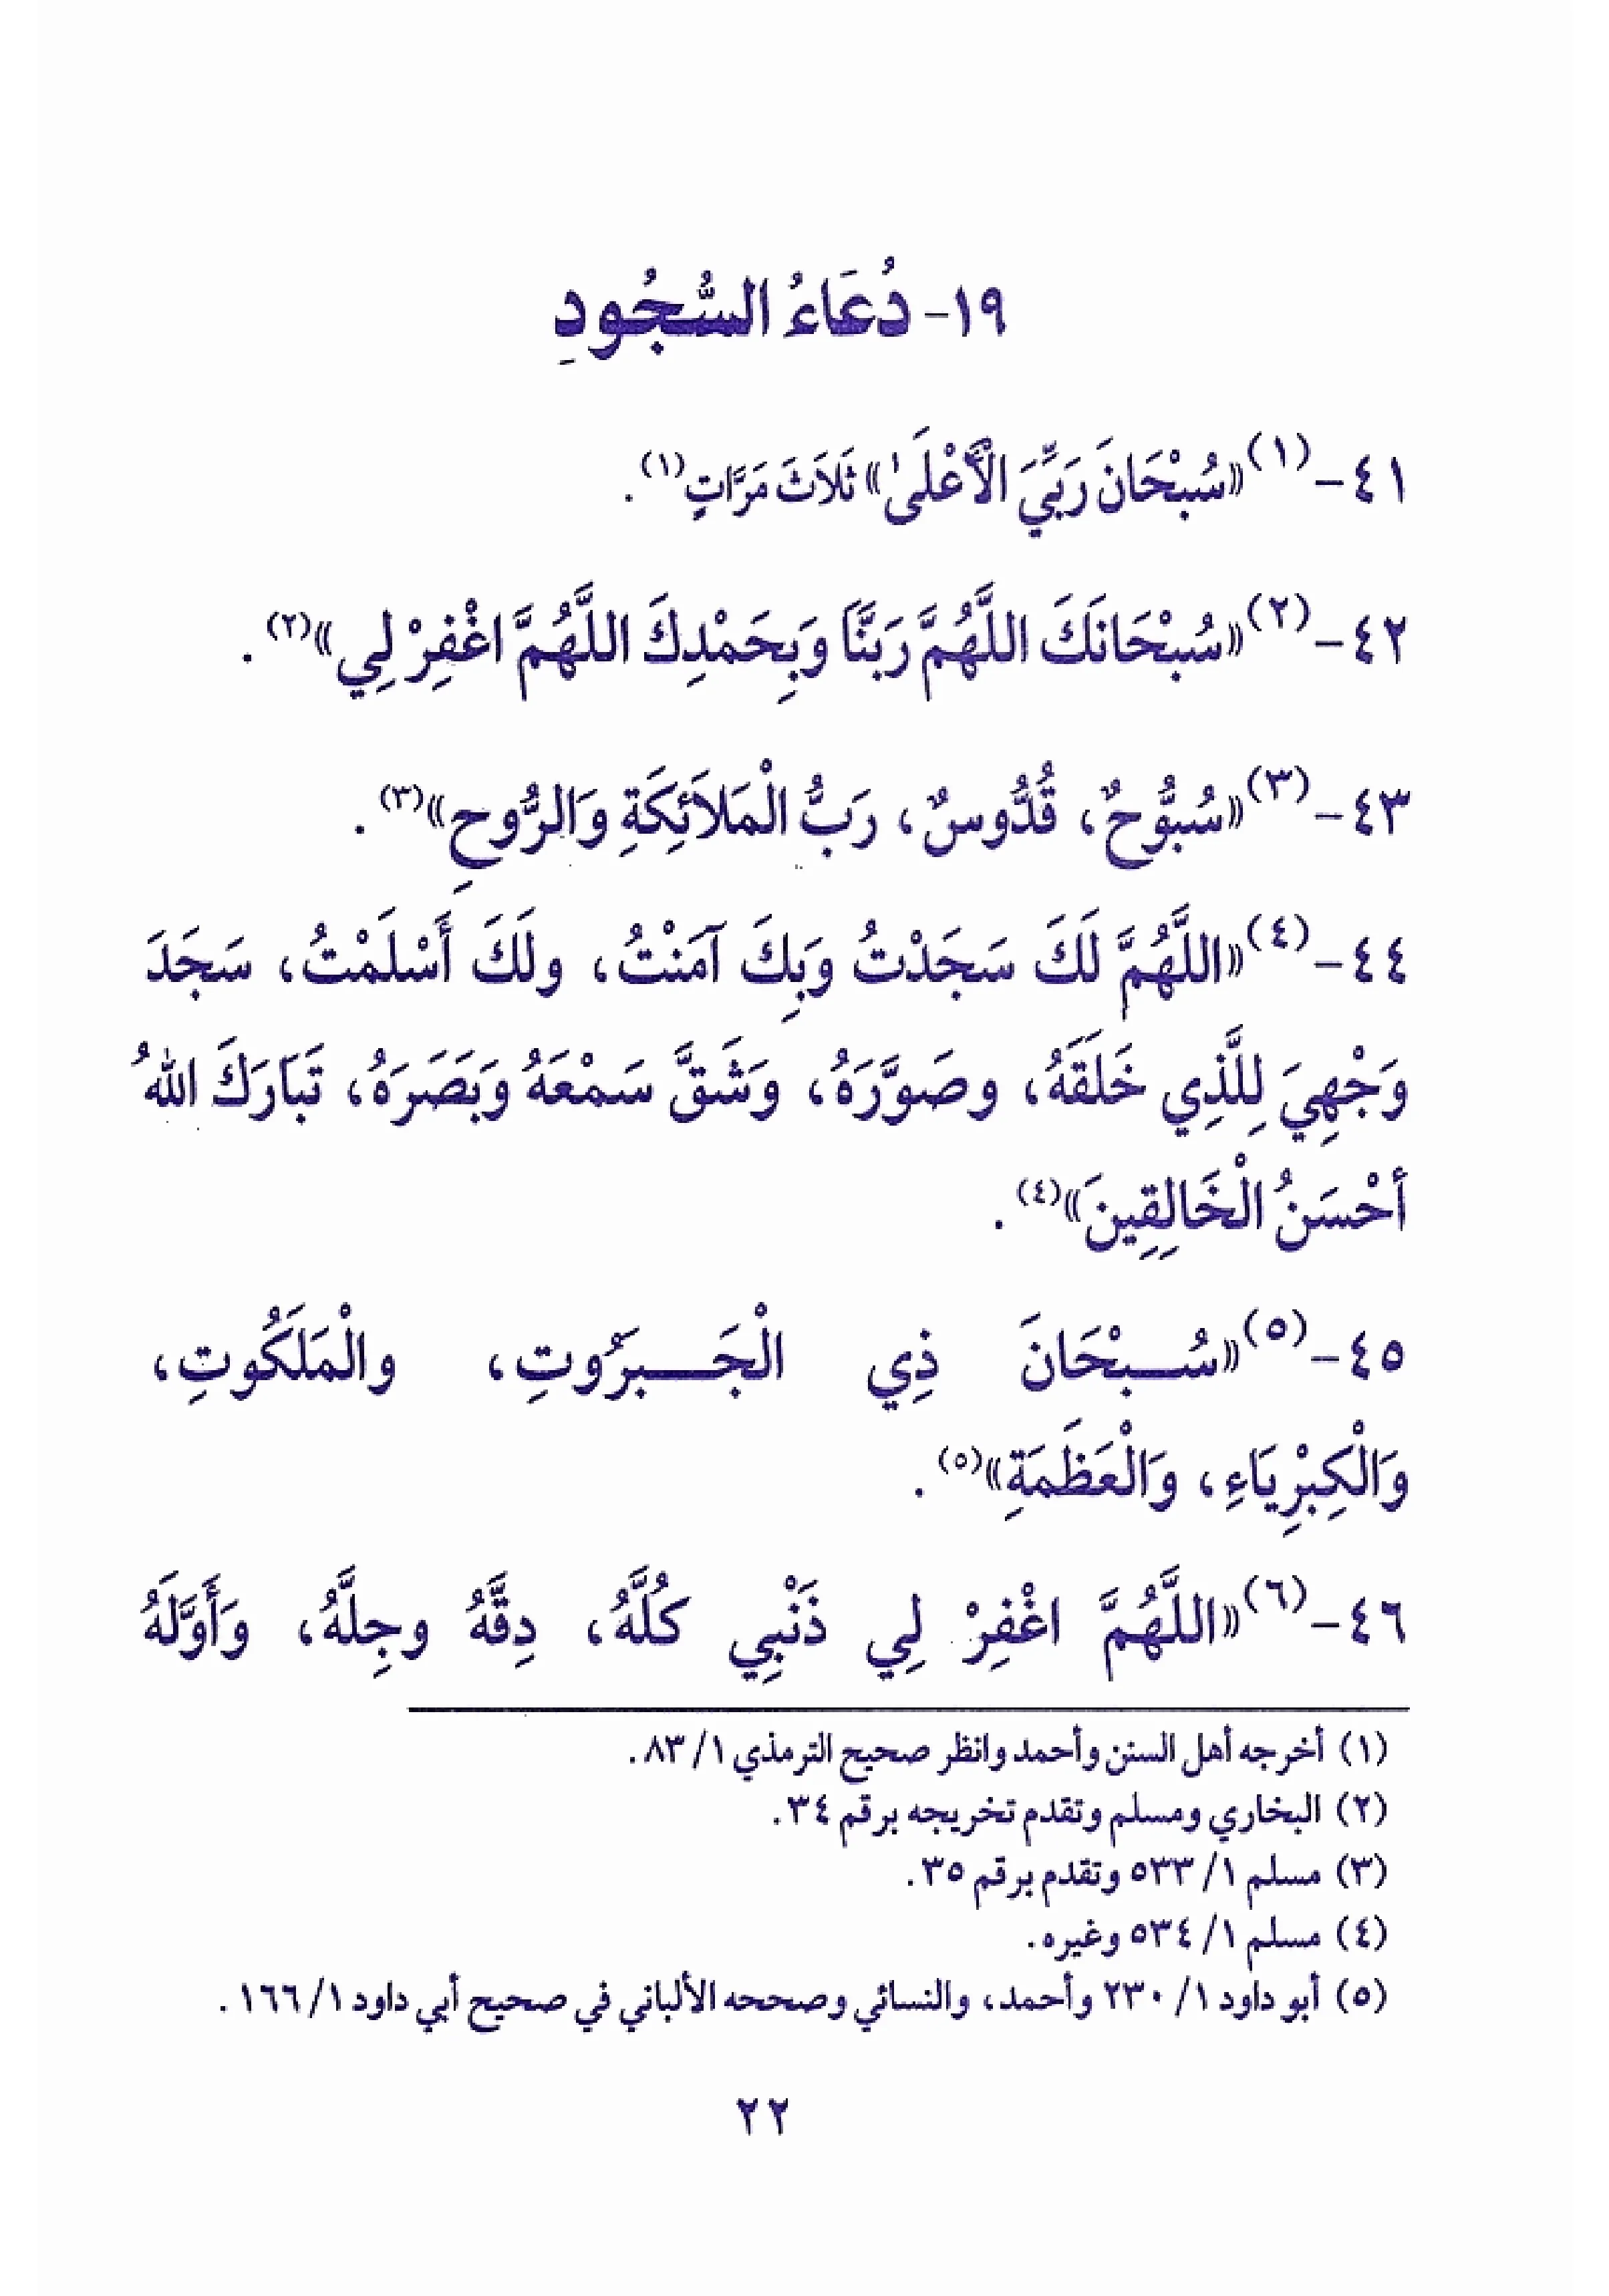 ١٩- دُعَاءُ السُّجُودِ
٤١-(١)«سُبْحَانَ رَبِّيَ الْأَعْلَىٰ» ثَلاَثَ مَرَّاتٍ(١).
٤٢-(٢)«سُبْحَانَكَ اللَّهُمَّ رَبَّنَا وَبِحَمْدِكَ اللَّهُمَّ اغْفِرْ لِي»(٢).
٤٣-(٣)«سُبُّوحٌ، قُدُّوسٌ، رَبُّ الْمَلاَئِكَةِ وَالرُّوحِ»(٣).
٤٤-(٤)«اللَّهُمَّ لَكَ سَجَدْتُ وَبِكَ آمَنْتُ، ولَكَ أَسْلَمْتُ، سَجَدَ
وَجْهِيَ لِلَّذِي خَلَقَهُ، وصَوَّرَهُ، وَشَقَّ سَمْعَهُ وَبَصَرَهُ، تَبَارَكَ اللهُ
أحْسَنُ الْخَالِقِينَ»(٤).
٤٥-(٥)«سُـبْحَانَ ذِي الْجَـبَرُوتِ، والْمَلَكُوتِ،
وَالْكِبْرِيَاءِ، وَالْعَظَمَةِ»(٥).
٤٦-(٦)«اللَّهُمَّ اغْفِرْ لِي ذَنْبِي كُلَّهُ، دِقَّهُ وجِلَّهُ، وَأَوَّلَهُ
(١) أخرجه أهل السنن وأحمد وانظر صحيح الترمذي ١/ ٨٣.
(٢) البخاري ومسلم وتقدم تخريجه برقم ٣٤.
(٣) مسلم ١/ ٥٣٣ وتقدم برقم ٣٥.
(٤) مسلم ١/ ٥٣٤ وغيره.
(٥) أبو داود ١/ ٢٣٠ وأحمد، والنسائي وصححه الألباني في صحيح أبي داود ١/ ١٦٦.
٢٢